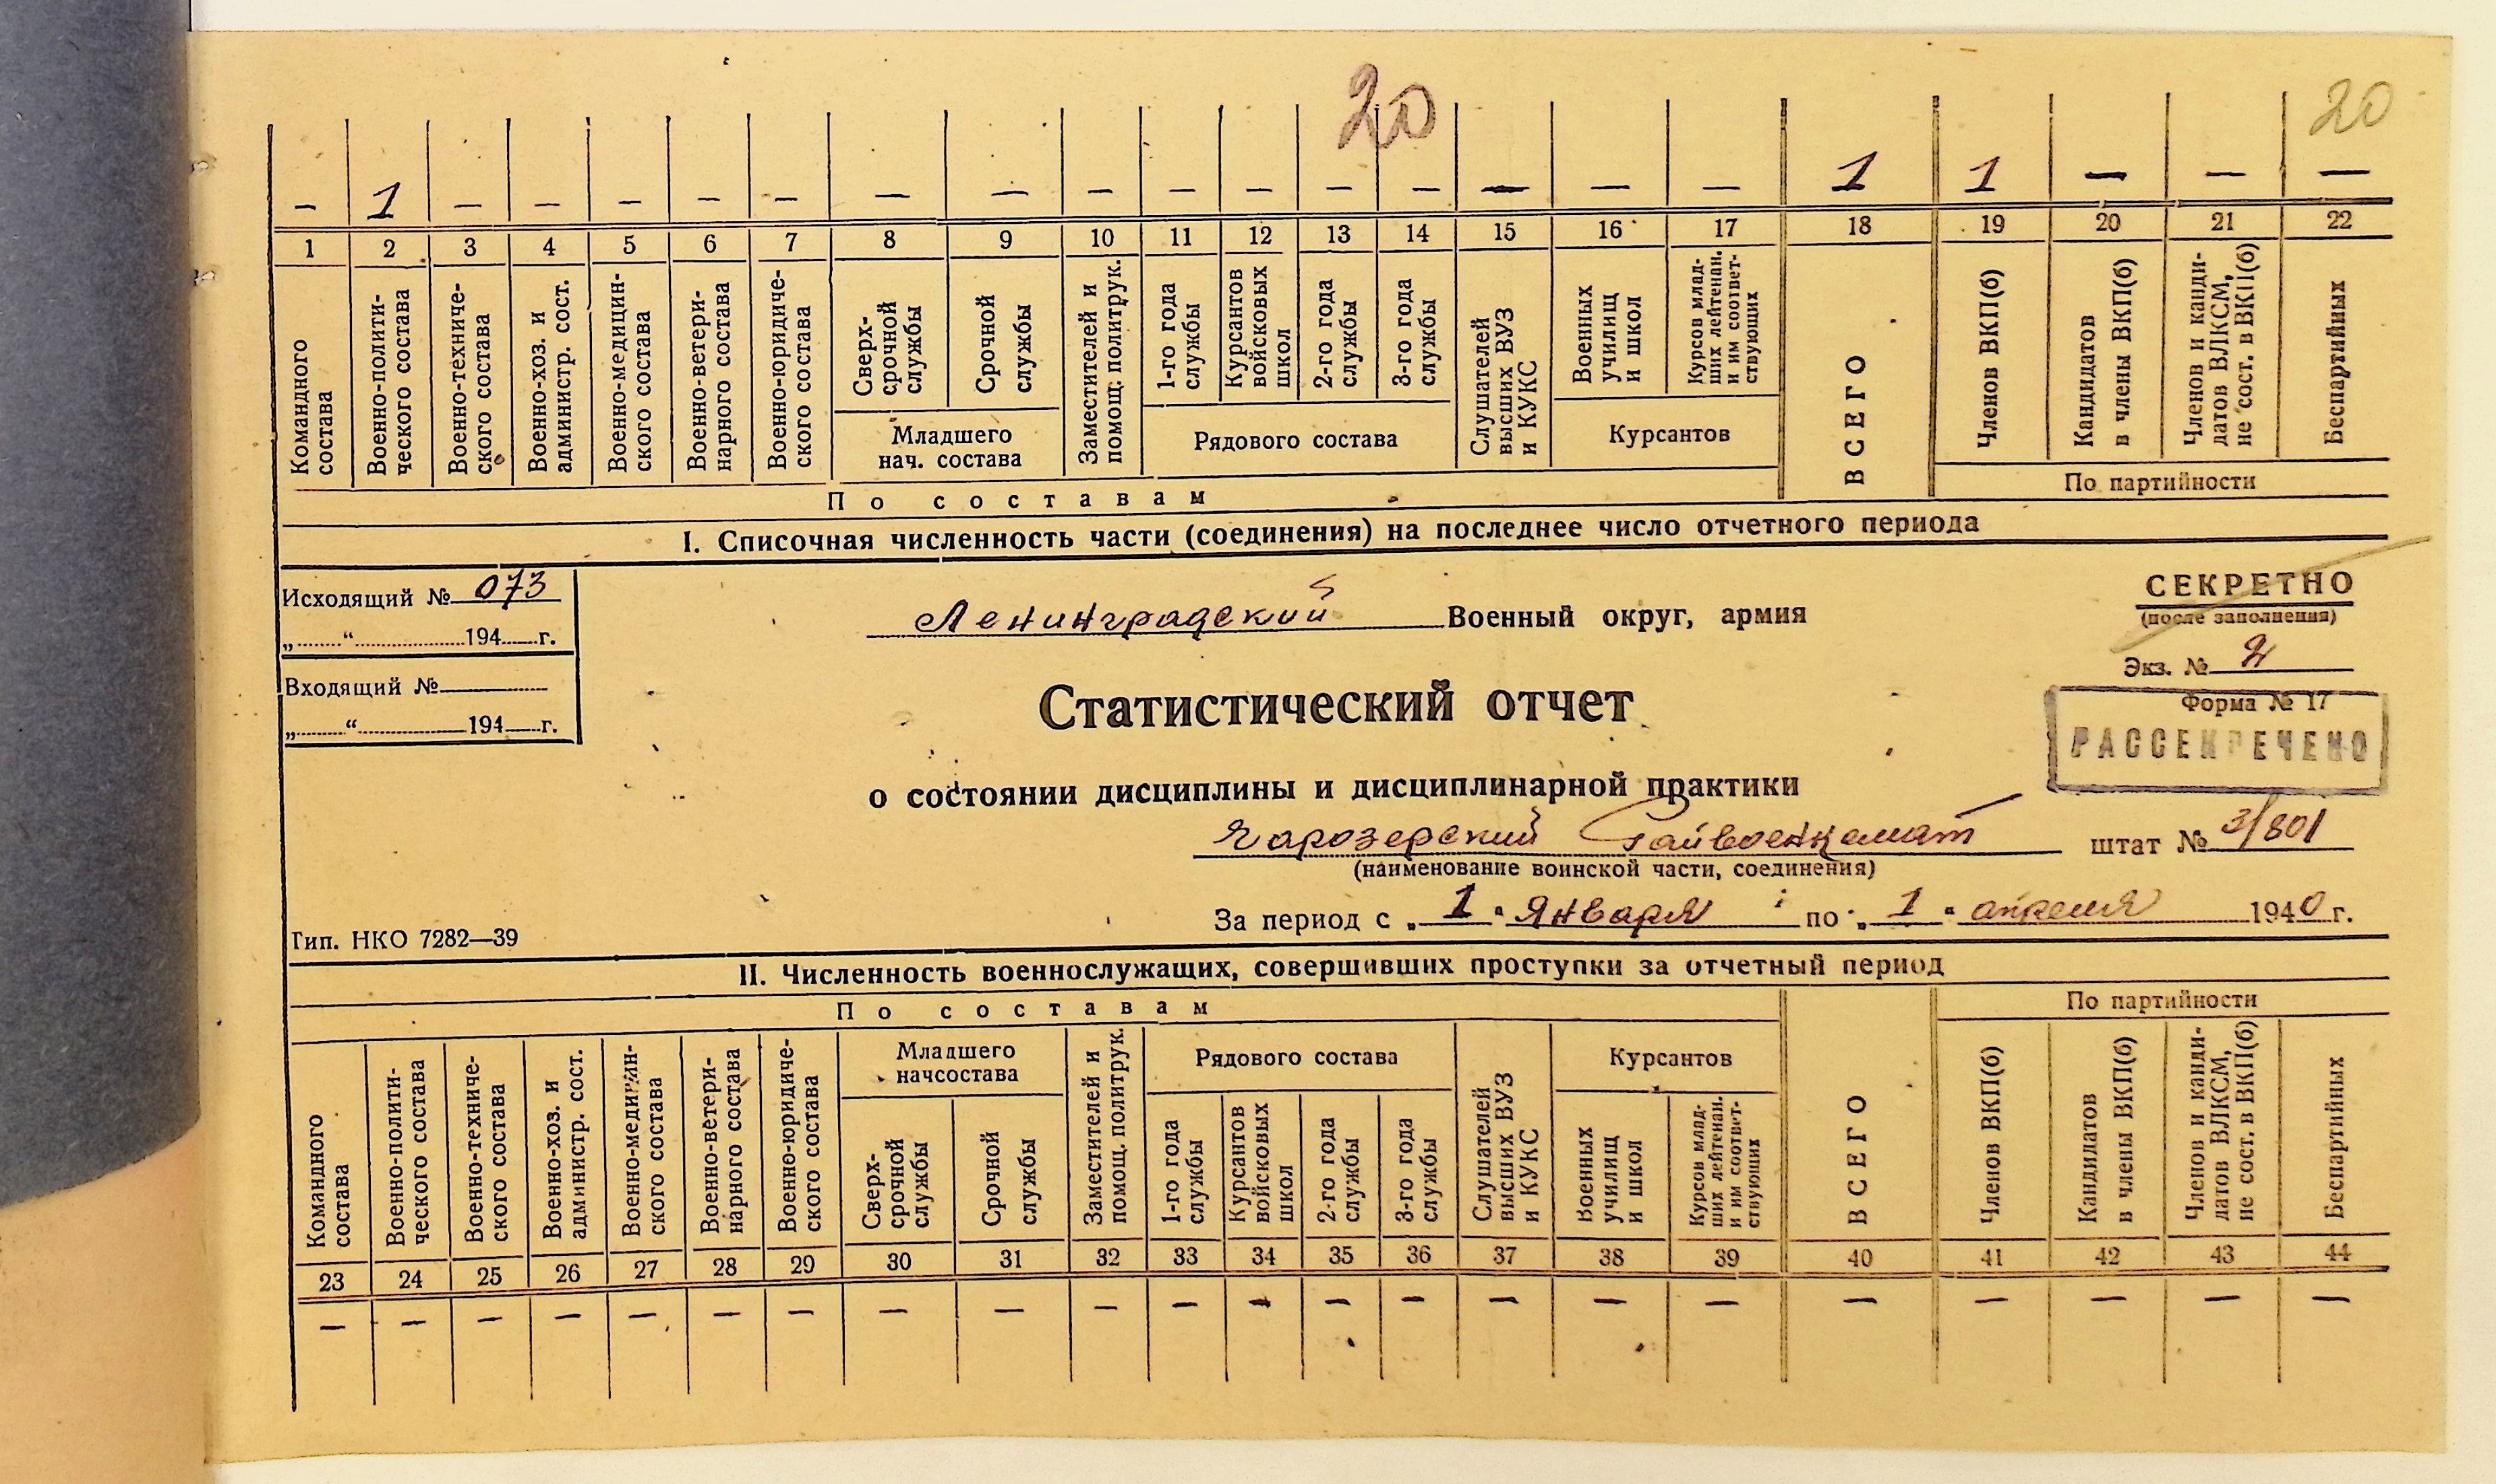 20
20
— 1 — — — — — — — — — — — — — — — 1 1 — — —
1 2 3 4 5 6 7 8 9 10 11 12 13 14 15 16 17 18 19 20 21 22
Командного
состава
Военно-полити-
ческого состава
Военно-техниче-
ского состава
Военно-хоз. и
администр. сост.
Военно-медицин-
ского состава
Военно-ветери-
нарного состава
Военно-юридиче-
ского состава
Сверх-
срочной
службы
Срочной
службы
Младшего
нач. состава
Заместителей и
помощ. политрук.
1-го года
службы
Курсантов
войсковых
школ
2-го года
службы
3-го года
службы
Рядового состава
Слушателей
высших ВУЗ
и КУКС
Военных
училищ
и школ
Курсов млад-
ших лейтенан.
и им соответ-
ствующих
Курсантов
ВСЕГО
Членов ВКП(б)
Кандидатов
в члены ВКП(б)
Членов и канди-
датов ВЛКСМ,
не сост. в ВКП(б)
Беспартийных
По партийности
По составам
I. Списочная численность части (соединения) на последнее число отчетного периода
Исходящий № 073
„ “ 194 г.
Входящий №
„ “ 194 г.
Ленинградский Военный округ, армия
СЕКРЕТНО
(после заполнения)
Экз. № 2
Форма № 17
РАССЕКРЕЧЕНО
Статистический отчет
о состоянии дисциплины и дисциплинарной практики
Чарозерский Райвоенкомат штат № 3/801
(наименование воинской части, соединения)
За период с „ 1 “ Января по „ 1 “ апреля 1940 г.
Тип. НКО 7282—39
II. Численность военнослужащих, совершивших проступки за отчетный период
По составам
По партийности
Командного
состава
Военно-полити-
ческого состава
Военно-техниче-
ского состава
Военно-хоз. и
администр. сост.
Военно-медицин-
ского состава
Военно-ветери-
нарного состава
Военно-юридиче-
ского состава
Младшего
начсостава
Сверх-
срочной
службы
Срочной
службы
Заместителей и
помощ. политрук.
Рядового состава
1-го года
службы
Курсантов
войсковых
школ
2-го года
службы
3-го года
службы
Слушателей
высших ВУЗ
и КУКС
Курсантов
Военных
училищ
и школ
Курсов млад-
ших лейтенан.
и им соответ-
ствующих
ВСЕГО
Членов ВКП(б)
Кандидатов
в члены ВКП(б)
Членов и канди-
датов ВЛКСМ,
не сост. в ВКП(б)
Беспартийных
23 24 25 26 27 28 29 30 31 32 33 34 35 36 37 38 39 40 41 42 43 44
— — — — — — — — — — — — — — — — — — — — — —